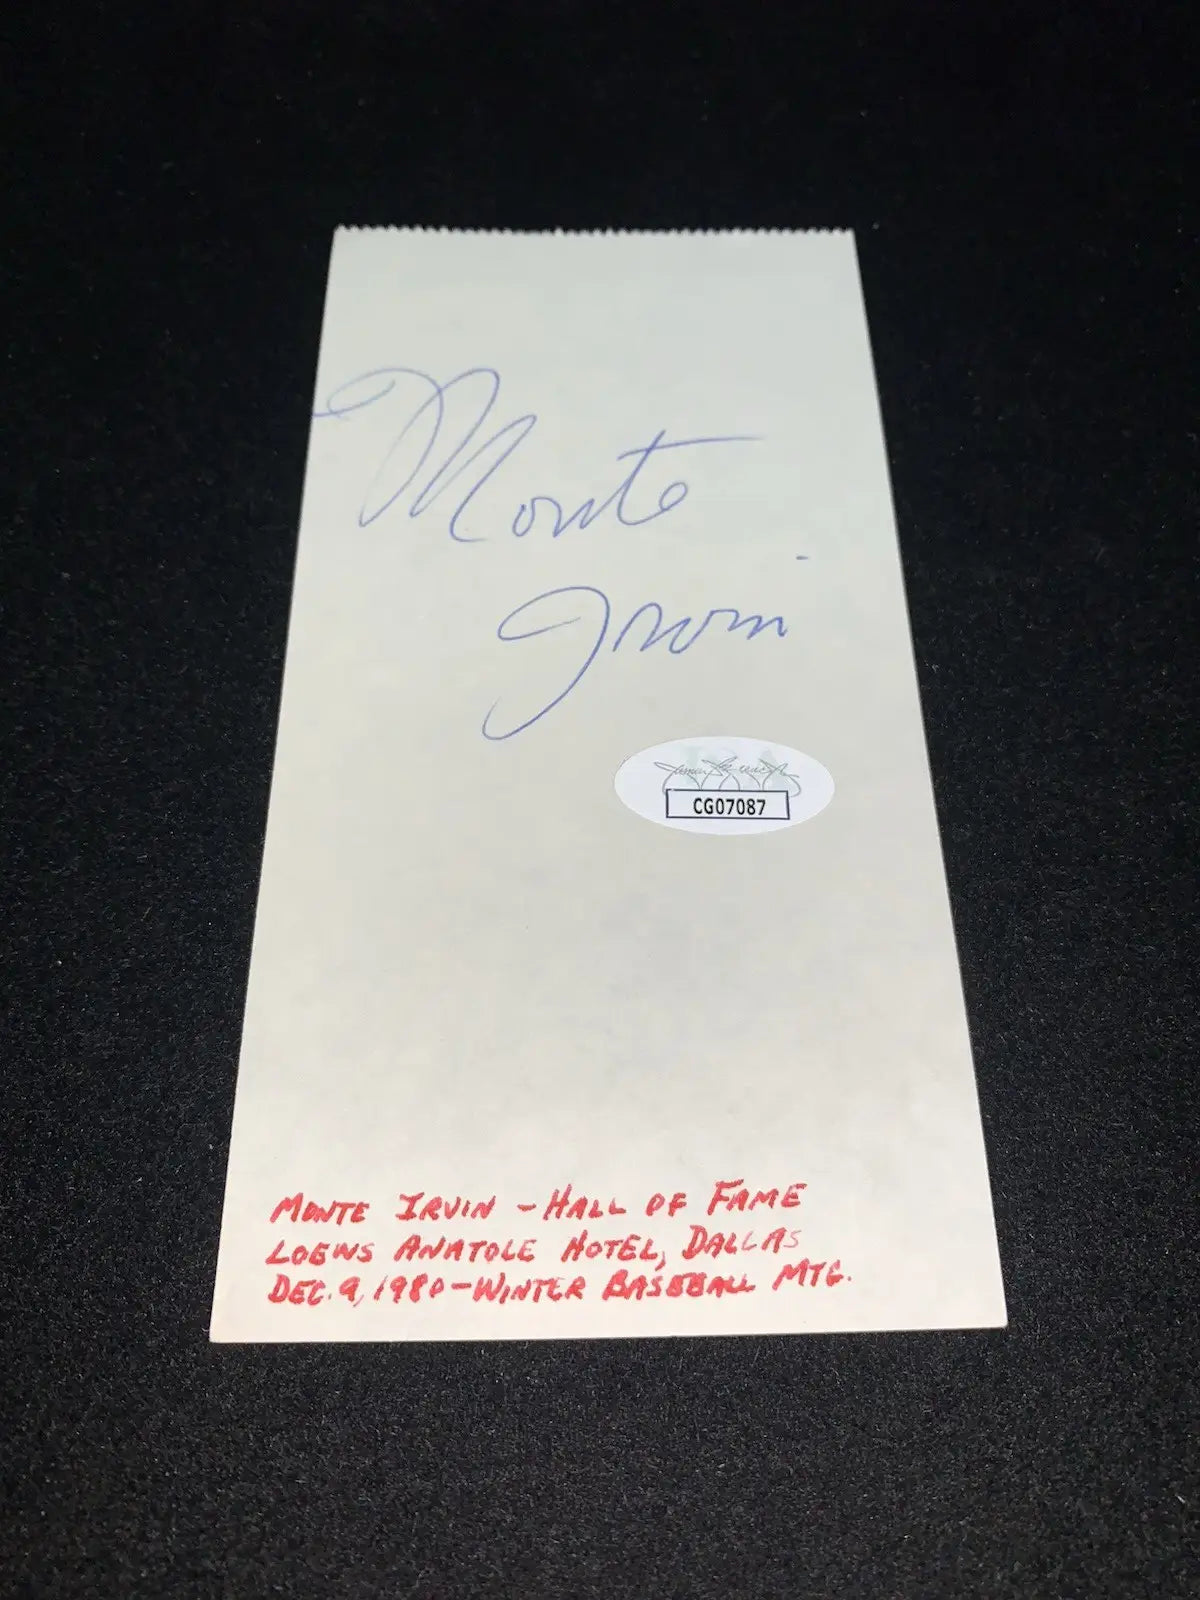 Monte
Irvin
JSA
James Spence
CG07087
MONTE IRVIN - HALL OF FAME
LOEWS ANATOLE HOTEL, DALLAS
DEC. 9, 1980 - WINTER BASEBALL MTG.